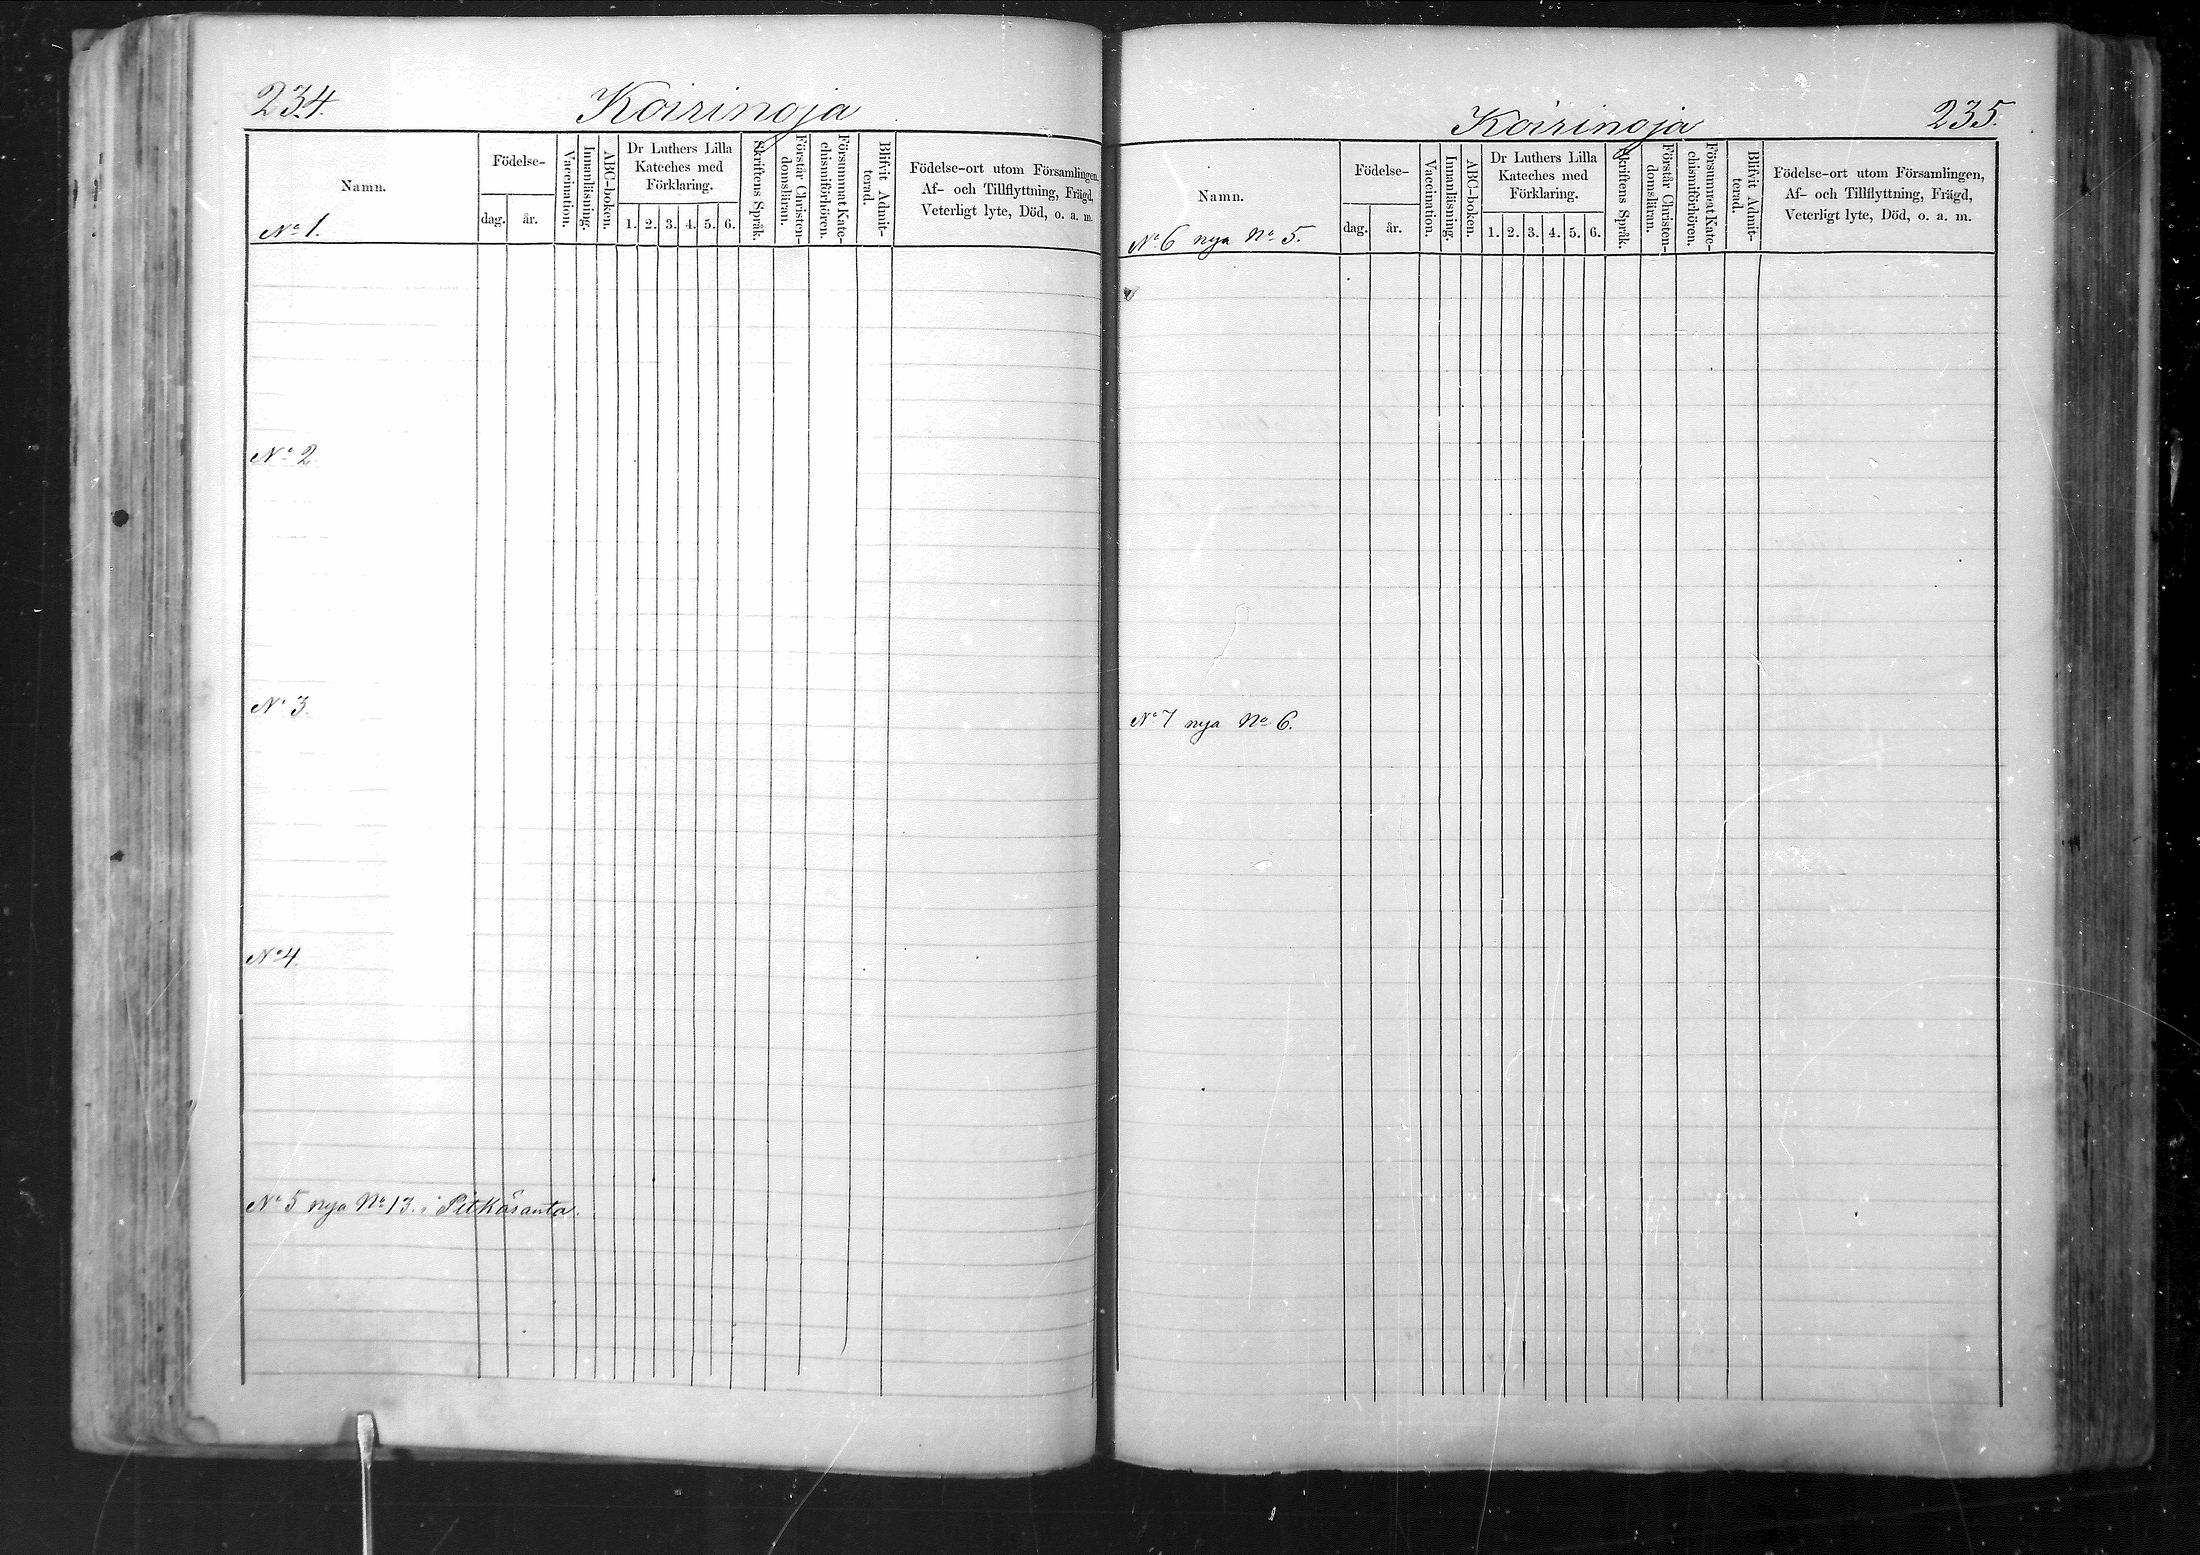 234.
Koirinoja
Namn.
Födelse-
dag.
år.
Vaccination.
Innanläsning.
ABC-boken.
Dr Luthers Lilla
Kateches med
Förklaring.
1. 2. 3. 4. 5. 6.
Skriftens Språk.
Förstår Christen-
domsläran.
Försummat Kate-
chismiförhören.
Blifvit Admit-
terad.
Födelse-ort utom Församlingen,
Af- och Tillflyttning, Frägd,
Veterligt lyte, Död, o. a. m.
No 1.
No 2.
No 3.
No 4.
No 5 nya No 13. i Pitkäsanta.
Koirinoja
235.
Namn.
Födelse-
dag.
år.
Vaccination.
Innanläsning.
ABC-boken.
Dr Luthers Lilla
Kateches med
Förklaring.
1. 2. 3. 4. 5. 6.
Skriftens Språk.
Förstår Christen-
domsläran.
Försummat Kate-
chismiförhören.
Blifvit Admit-
terad.
Födelse-ort utom Församlingen,
Af- och Tillflyttning, Frägd,
Veterligt lyte, Död, o. a. m.
No 6 nya No 5.
No 7 nya No 6.